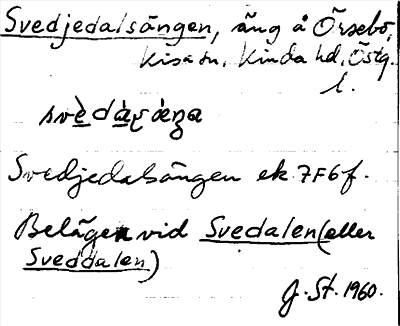 Svedjedalsängen, äng å Örsebo,
Kisa sn, Kinda hd, Östg.
l.
Svedjedalsängen ek. 7F6f.
Belägen vid Svedalen (eller
Sveddalen)
G. St. 1960.